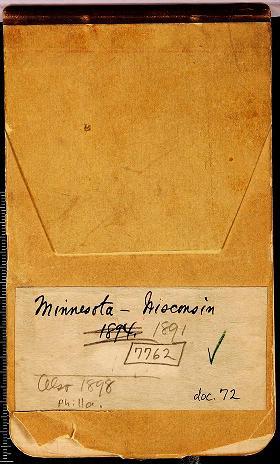 Minnesota – Wisconsin
1894. 1891
7762
Also 1898
Philla.
doc. 72